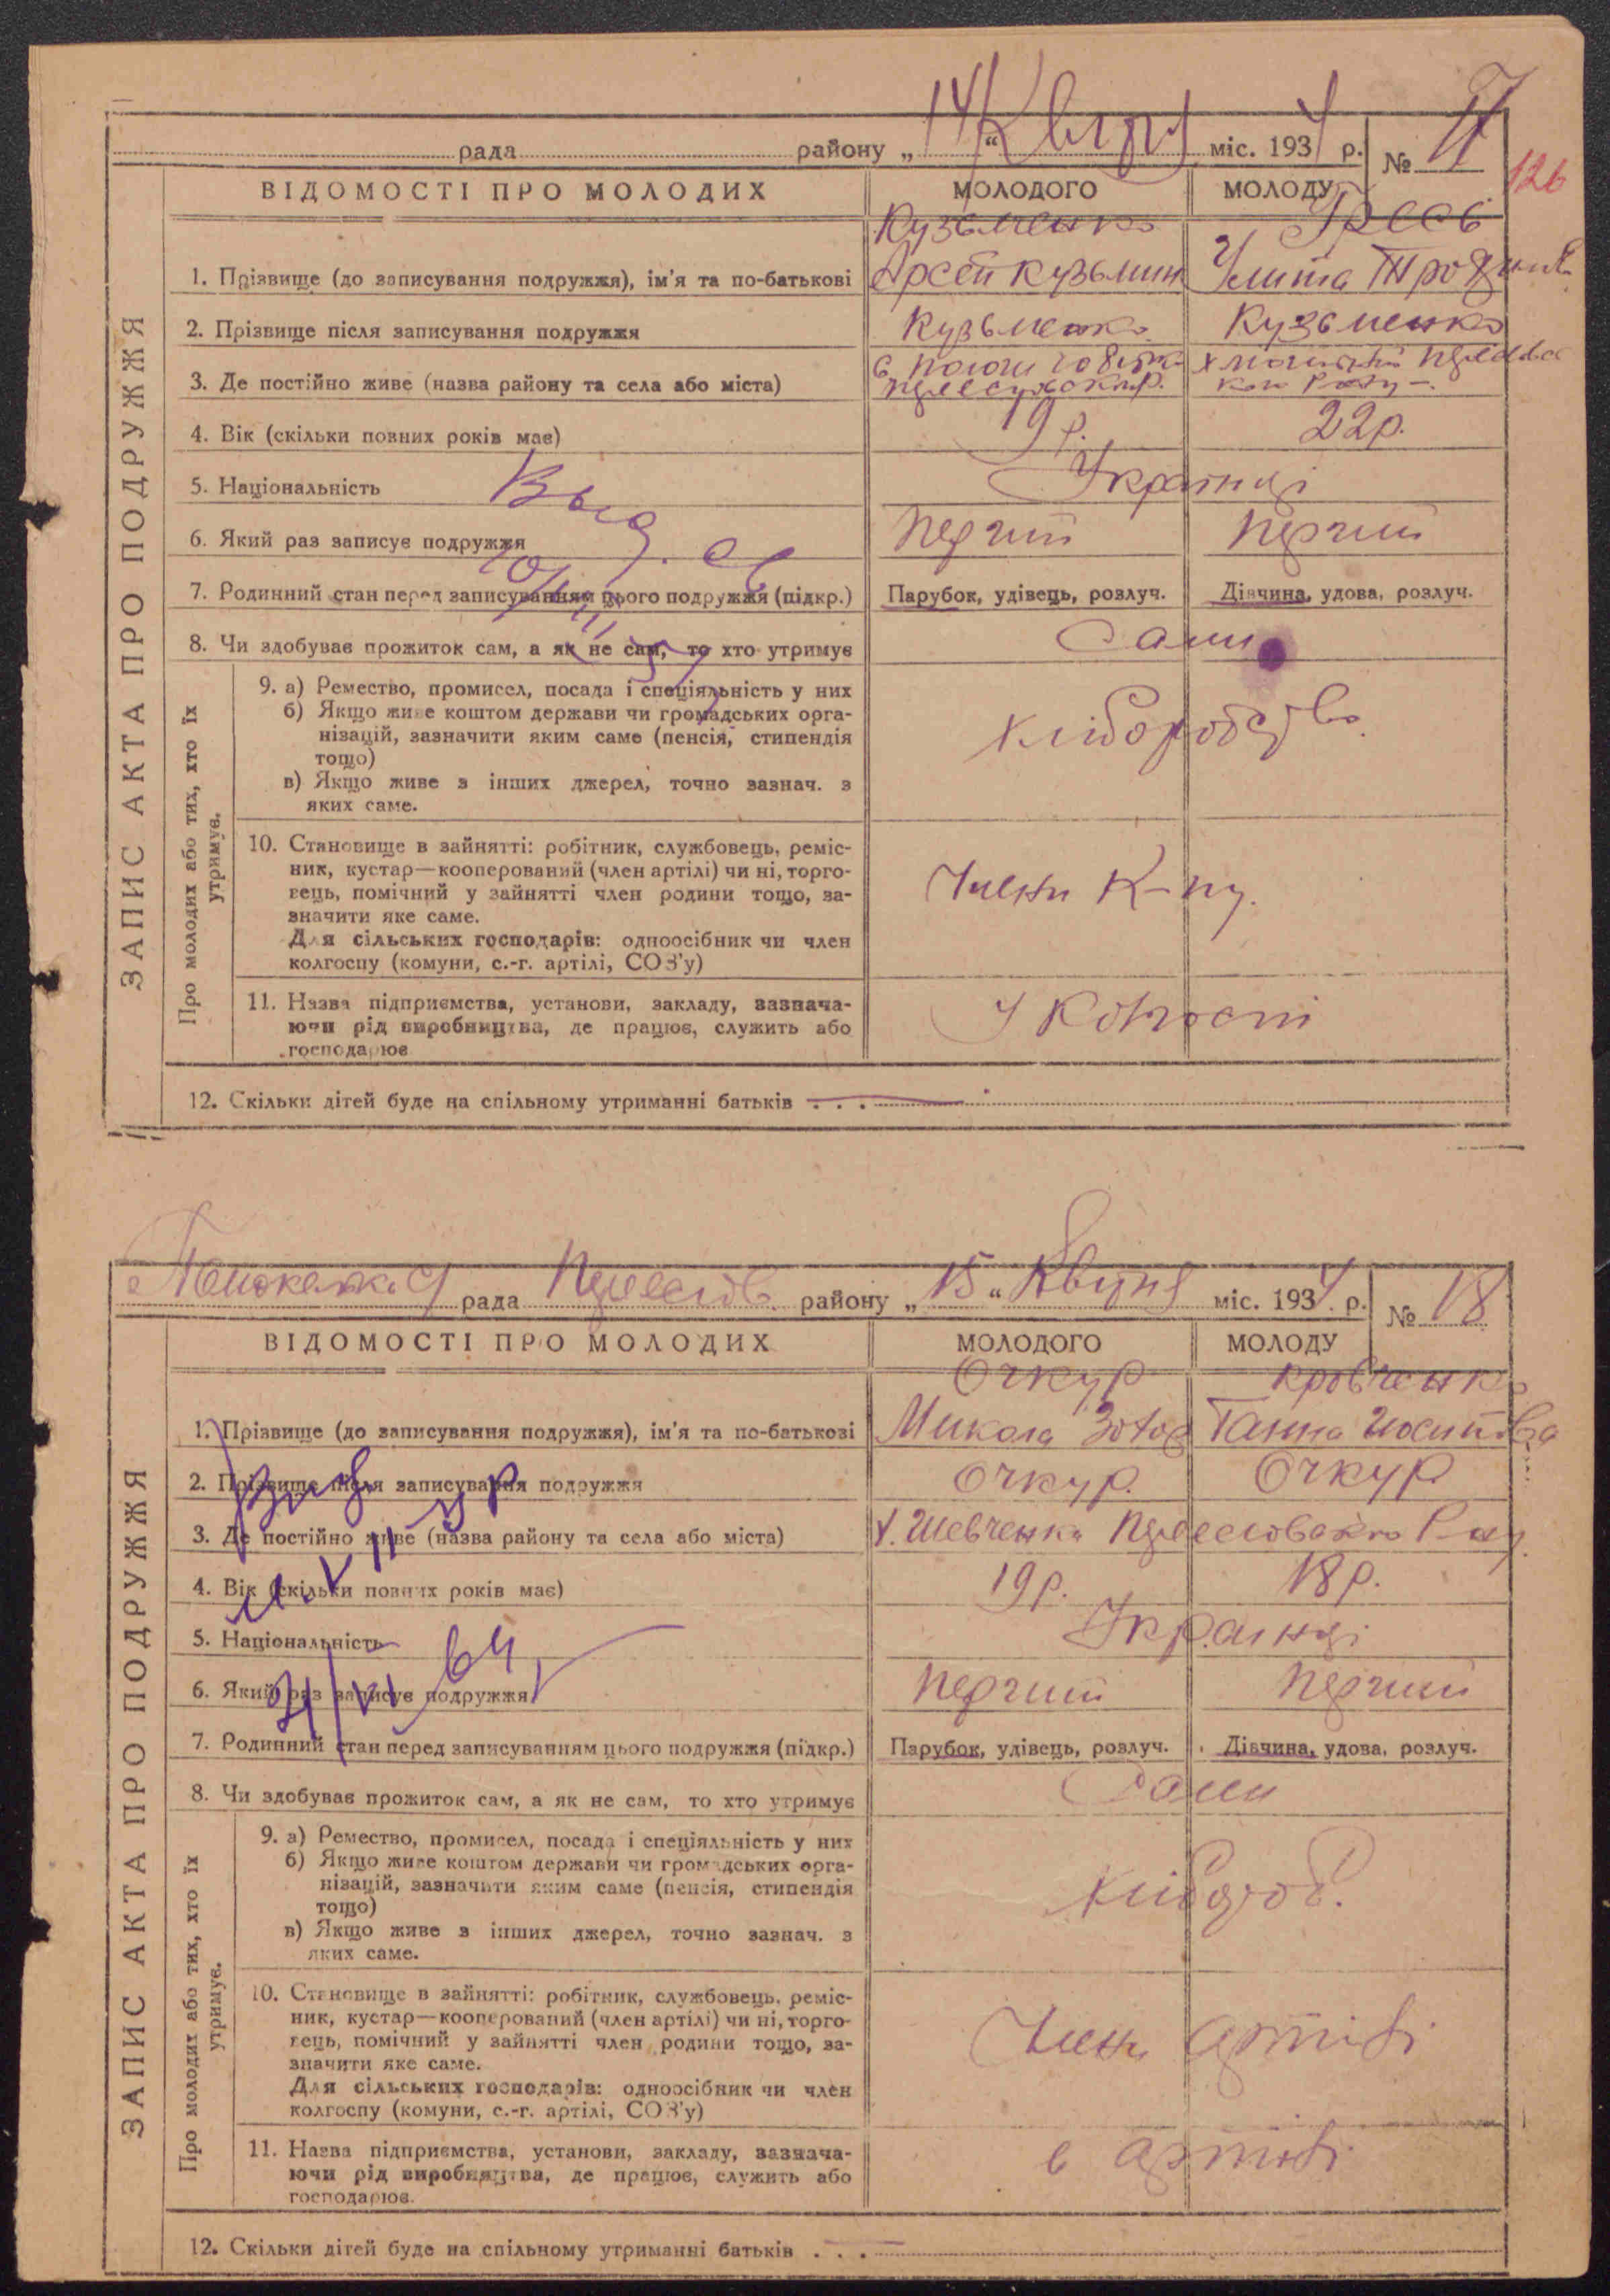 рада района „14“ Квітня міс. 1934 р. № 17
126
ВІДОМОСТІ ПРО МОЛОДИХ МОЛОДОГО МОЛОДУ
Кузьменко
1. Прізвище (до записування подружжя), ім'я та по-батькові Кузьмин Улита
2. Прізвище після записування подружжя Кузьменко Кузьменко
3. Де постійно живе (назва району та села або міста)
4. Вік (скільки повних років має) 19 р. 22 р.
5. Національність Українці
6. Який раз записує подружжя Перший Перший
7. Родинний стан перед записуванням цього подружжя (підкр.) Парубок, удівець, розлуч. Дівчина, удова, розлуч.
8. Чи здобуває прожиток сам, а як не сам, то хто утримує Сами
ЗАПИС АКТА ПРО ПОДРУЖЖЯ
Про молодих або тих, хто їх утримує.
9. а) Ремество, промисел, посада і спеціяльність у них
б) Якщо живе коштом держави чи громадських орга-
нізацій, зазначити яким саме (пенсія, стипендія
тощо)
Хліборобство
в) Якщо живе з інших джерел, точно зазнач. з
яких саме.
10. Становище в зайнятті: робітник, службовець, реміс-
ник, кустар—кооперований (член артілі) чи ні, торго-
вець, помічний у зайнятті член родини тощо, за-
значити яке саме.
Члени К-пу.
Для сільських господарів: одноосібник чи член
колгоспу (комуни, с.-г. артілі, СОЗ'у)
11. Назва підприємства, установи, закладу, зазнача-
ючи рід виробництва, де працює, служить або
господарює
У Колгоспі
12. Скільки дітей буде на спільному утриманні батьків . . . —
рада району „15“ Квітня міс. 1934 р. № 18
ВІДОМОСТІ ПРО МОЛОДИХ МОЛОДОГО МОЛОДУ
Очкур Кровченко
1. Прізвище (до записування подружжя), ім'я та по-батькові Микола Зотов Ганна Иосипова
2. Прізвище після записування подружжя Очкур. Очкур
3. Де постійно живе (назва району та села або міста) х. Шевченка
4. Вік (скільки повних років має) 19 р. 18 р.
5. Національність Українці
6. Який раз записує подружжя Перший Перший
7. Родинний стан перед записуванням цього подружжя (підкр.) Парубок, удівець, розлуч. Дівчина, удова, розлуч.
8. Чи здобуває прожиток сам, а як не сам, то хто утримує Сами
ЗАПИС АКТА ПРО ПОДРУЖЖЯ
Про молодих або тих, хто їх утримує.
9. а) Ремество, промисел, посада і спеціяльність у них
б) Якщо живе коштом держави чи громадських орга-
нізацій, зазначити яким саме (пенсія, стипендія
тощо)
Хлібороб.
в) Якщо живе з інших джерел, точно зазнач. з
яких саме.
10. Становище в зайнятті: робітник, службовець, реміс-
ник, кустар—кооперований (член артілі) чи ні, торго-
вець, помічний у зайнятті член родини тощо, за-
значити яке саме.
Члени артілі
Для сільських господарів: одноосібник чи член
колгоспу (комуни, с.-г. артілі, СОЗ'у)
11. Назва підприємства, установи, закладу, зазнача-
ючи рід виробництва, де працює, служить або
господарює.
в артілі
12. Скільки дітей буде на спільному утриманні батьків . . . —